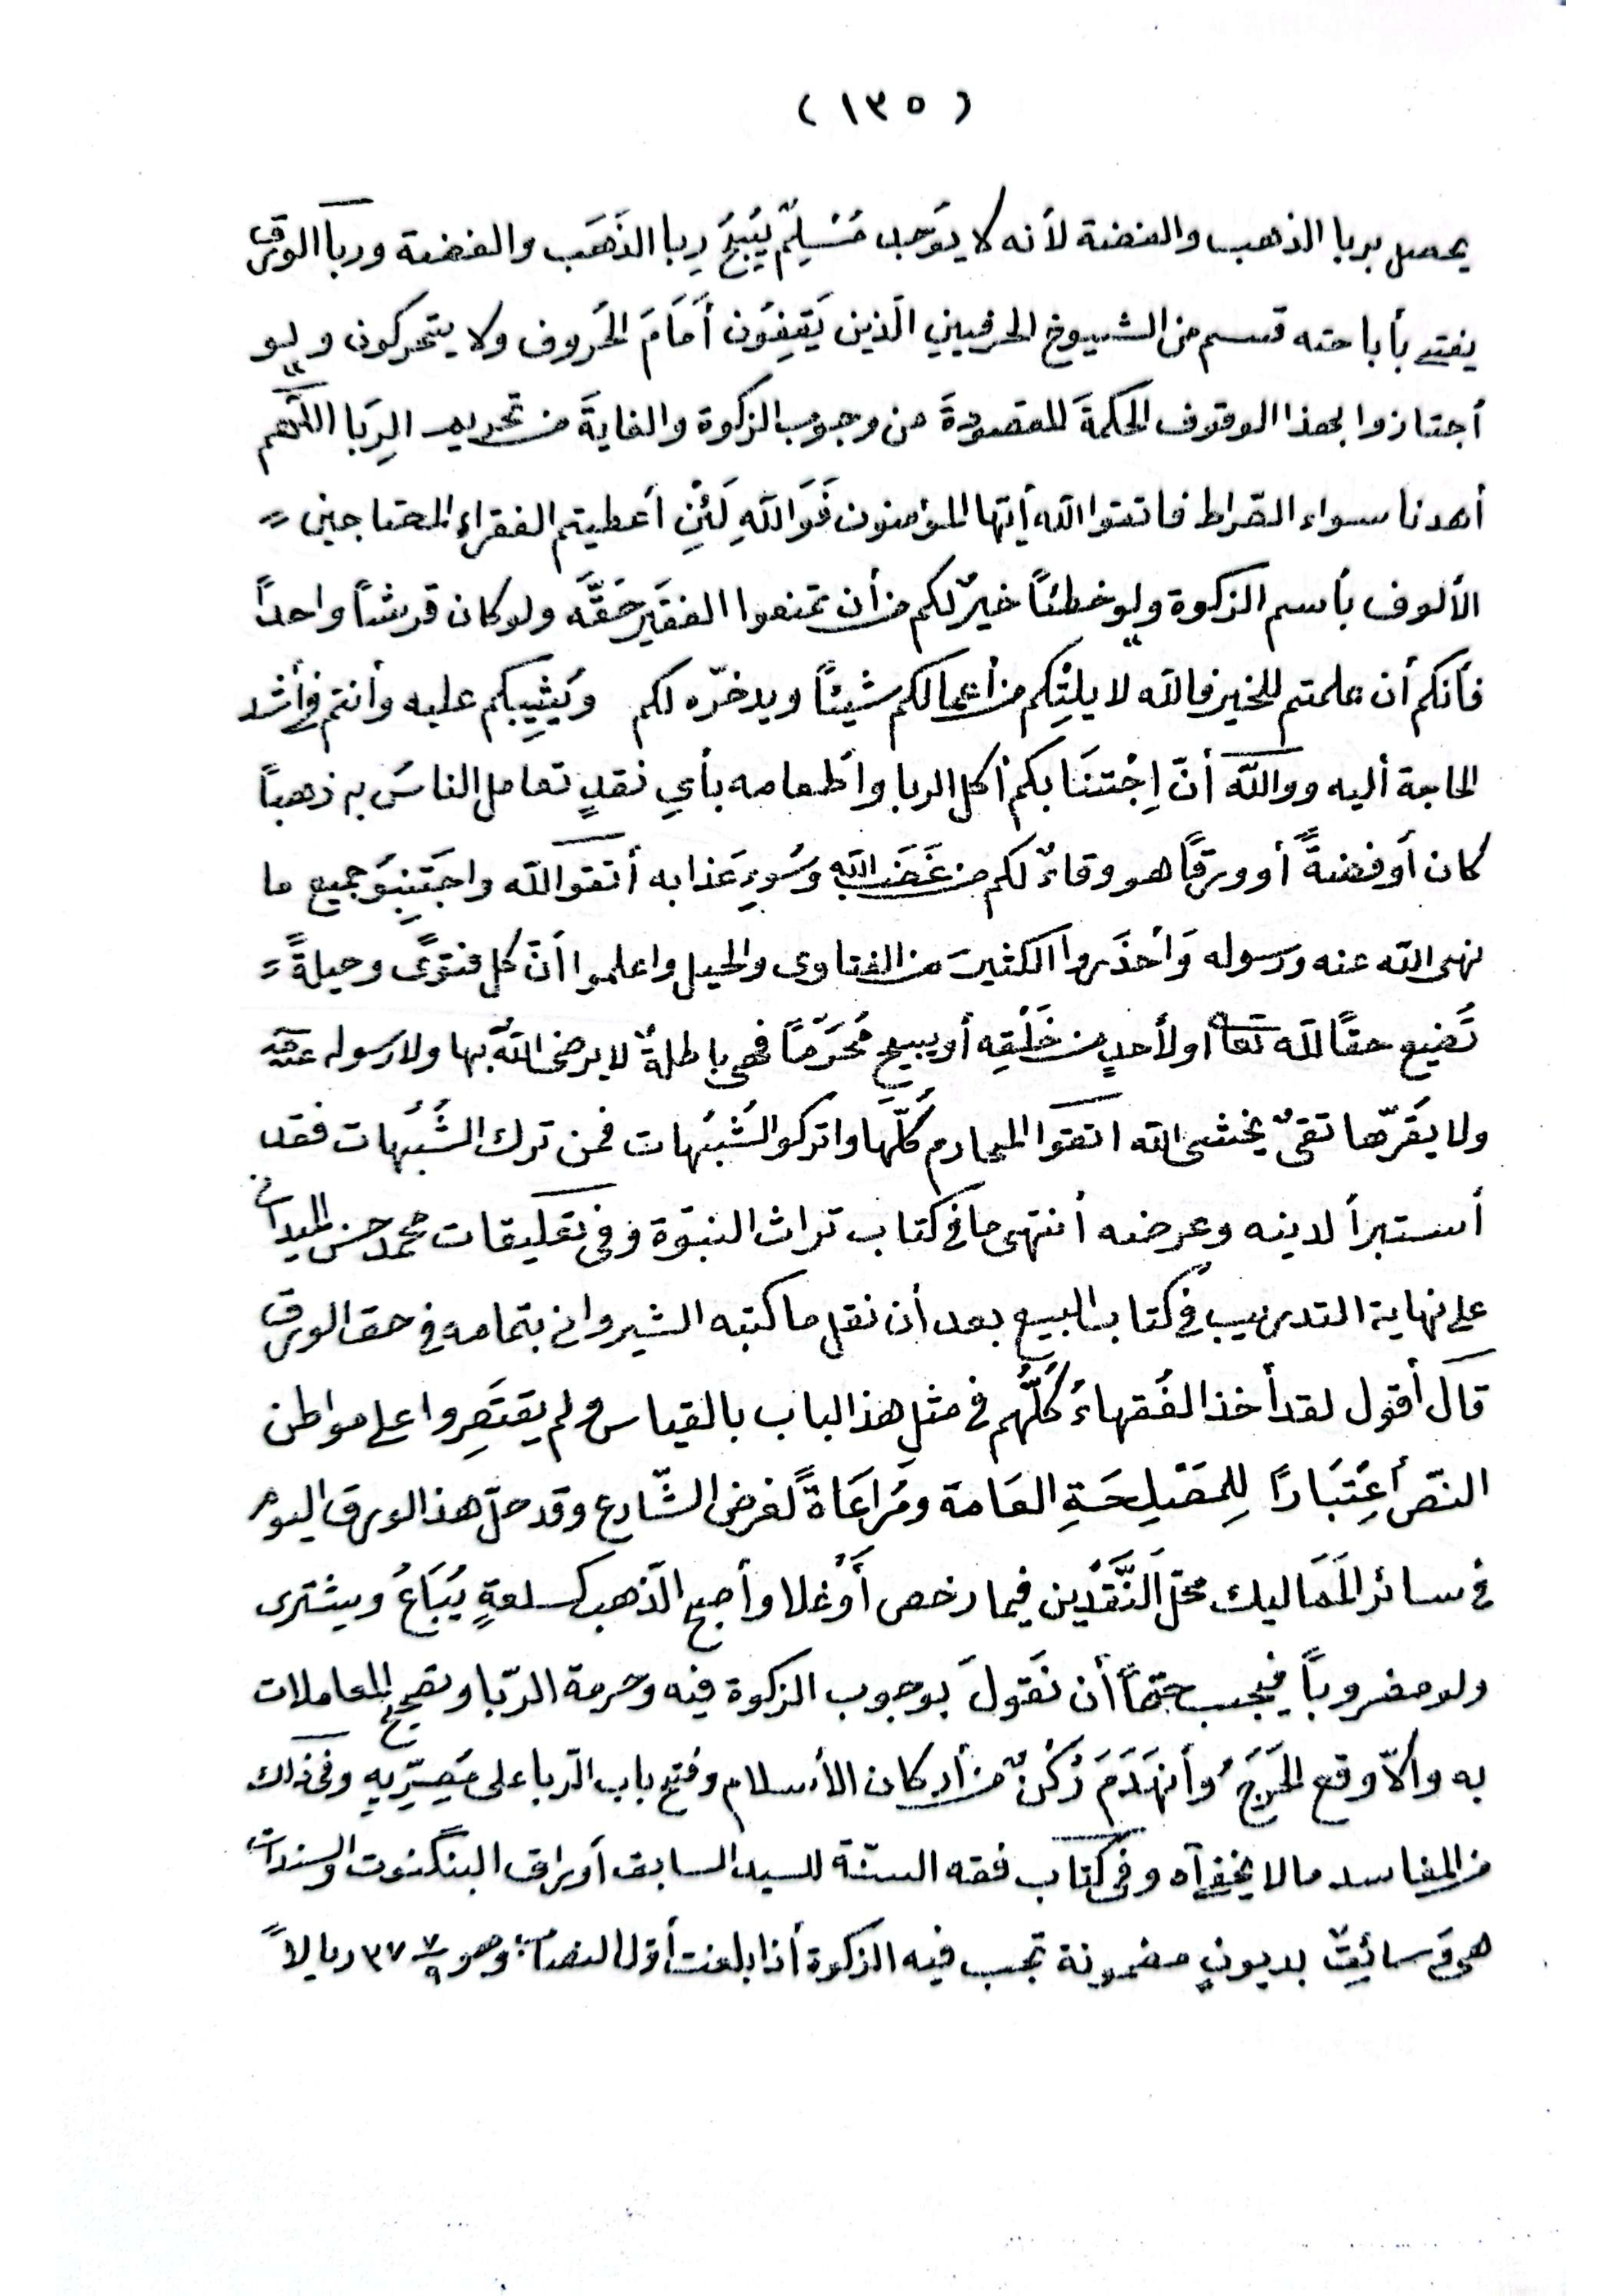 (١٣٥)
يحصل بربا الذهب والفضة لأنه لا يوَجد مُسْلِمٌ يُبيحُ رِبا الذَهَب والفضة ورباَ الورق
يفتى بأباحته قسم من الشيوخ الحرفيين الَذين يَقِفِوُن أَمَامَ الحُروف ولا يتحركون ولو
أجتازوا بهذا الوقوف الحكمةَ المقصودةَ من وجوب الزكوة والغايةَ من تحريم الرِبَا اللّهم
أهدنا سواء الصّراط فاتقوا الله أيّها المؤمنون فَوَاللهِ لَئِنْ أعطيتم الفقراء المحتاجين =
الألوف بأسم الزكوة ولو خطئاً خيرٌ لكم من أن تمنعوا الفقَير حَقَّه ولو كان قرشاً واحداً
فأنكم أن علمتم للخير فالله لا يلِتْكم من أعمالكم شيئاً ويدخرّه لكم ويُثيِبكم عليه وأنتم في أشد
الحاجة أليه ووالله أنّ اِجْتنَابكم أكل الربا وأطعامه بأي نقدٍ تعامل الناسُ به ذهباً
كان أو فضةً أو ورقاً هو وقاءٌ لكم من غَضَب الله وسُوءِ عَذابه أتقوالله واجتَنِبوُ جميع ما
نهى الله عنه ورسوله وَأحْذَروا الكثيرَ من الفتاوى والحيل واعلموا أنّ كل فتوىً وحيلةً =
تُضيع حقاً لله تعا أو لأحدٍ من خَلْقِه أو يبيح مُحَرّماً فهي باطلةٌ لا يرضى اللهُ بها ولا رسوله عنه
ولا يقُرّها تقىٌ يخشى الله اتقوا المحارم كُلّها واتركو الشُبُهات فمن ترك الشُبُهات فقد
أستبرأ لدينه وعرضه أنتهى ما في كتاب تراث النبوّة وفي تعليقات محمد حسن الميداني
على نهاية التدريب في كتاب البيع بعد أن نقل ما كتبه الشيرواني بتمامه في حق الورق
قال أقول لقد أخذ الفُقهاءُ كُلّهُم في مثل هذ الباب بالقياس ولم يقتَصِروا على مواطن
النصّ أعِتْبَاراً لِلمَصْلِحَةِ العَامة ومُراعَاةً لغرض الشّارع وقد حلّ هذ الورق اليوم
في سائر المَمَاليك محَلّ النَّقَدْين فيما رخص أَوْغلا وأصبح الَذهب كسلعةٍ يُبَاعُ ويشترى
ولو مضروباً فيجب حتماً أن نقَولَ بوجوب الزكوة فيه وحرمة الرّبا وتصحيح المعاملات
به وألاّ وقع الحَرَجُ وأنهَدَمَ رُكْنٌ من أركان الأسلام وفتح باب الرّبا على مَصِرّيهِ وفي ذلك
من المفاسد مالا يخفى آه وفي كتاب فقه السنّة للسيد السابق أوراق البنگنوت والسندات
هى وثائق بديونٍ مضمونة تجب فيه الزكوة أذا بلغت أوّل النصاب وهو ٣٧ ٧/٩ ريالاً